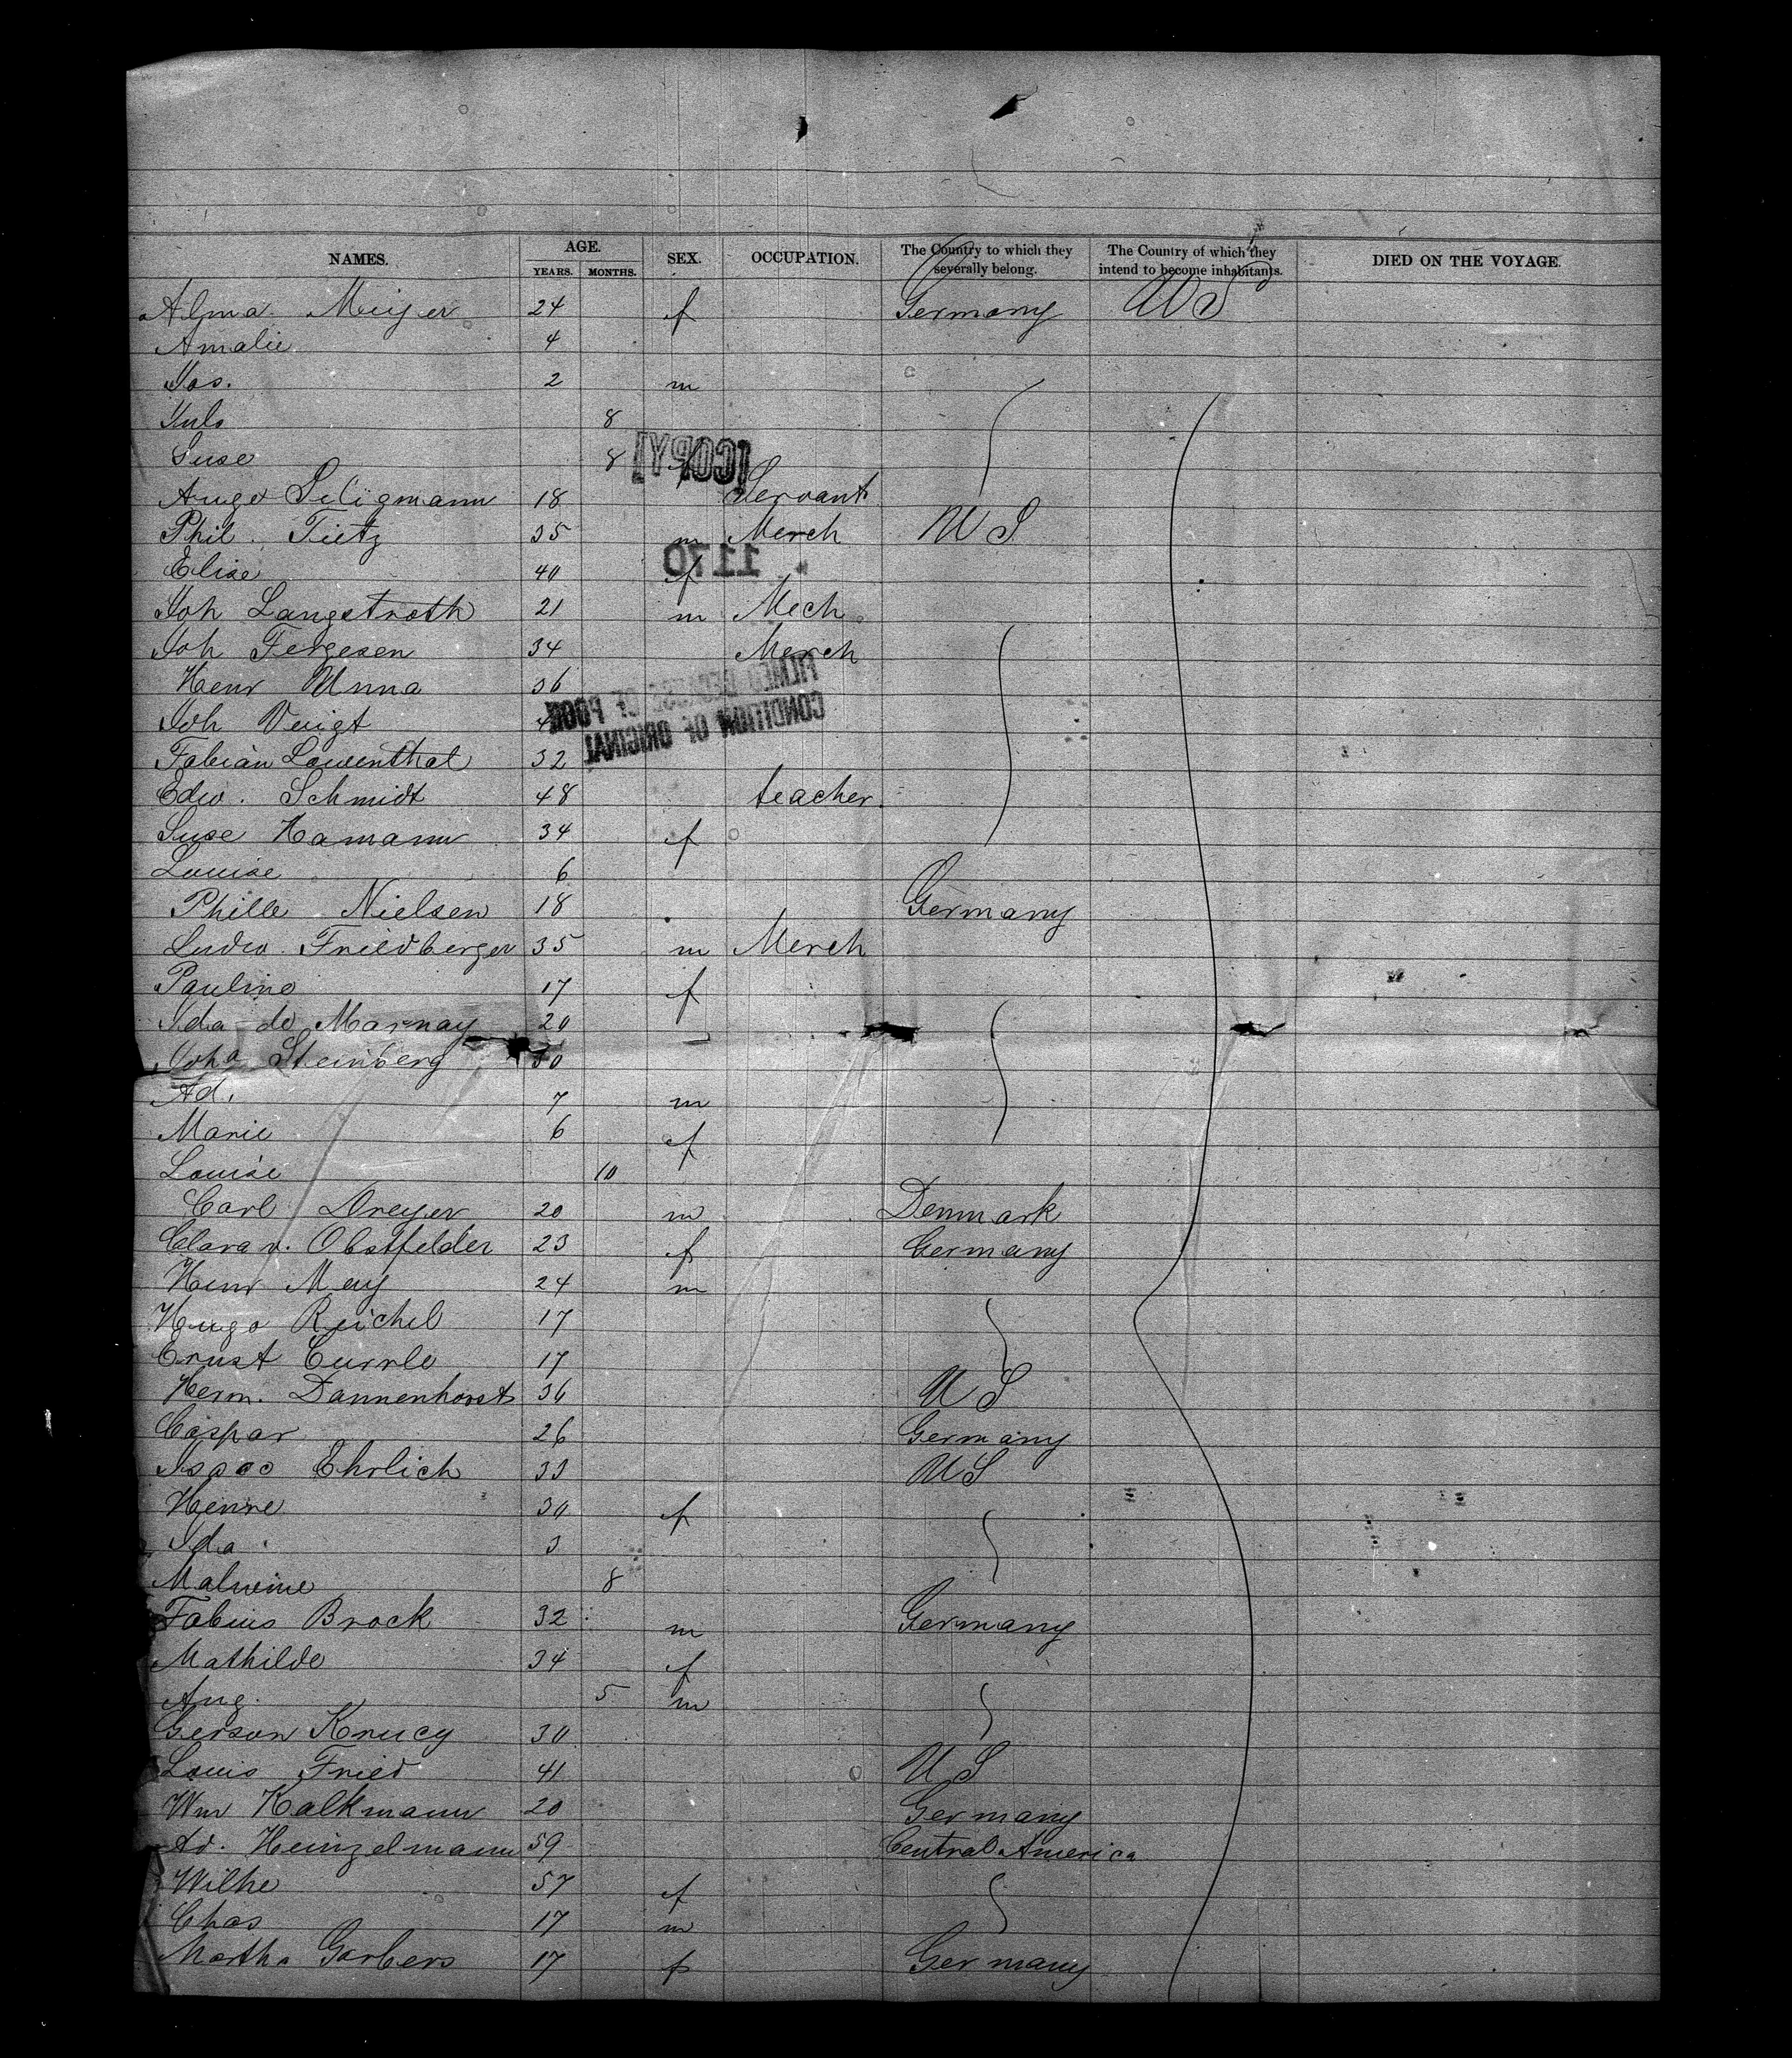 NAMES. AGE. YEARS. MONTHS. SEX. OCCUPATION. The Country to which they severally belong. The Country of which they intend to become inhabitants. DIED ON THE VOYAGE.
Alma Meijer 24 f Germany US
Amalie 4
Jos. 2 m
Jule 8
Suse 8 f
[COPY]
August Seligmann 18 Servant
Phil. Tietz 35 m Merch US
1170
Elise 40 f
Joh Langstroth 21 m Mech
Joh Fergesen 34 Merch
Henr Unna 36
FILMED BECAUSE OF POOR
CONDITION OF ORIGINAL
Joh Veigt
Fabian Lowenthal 32
Edw. Schmidt 48 teacher
Suse Hamann 34 f
Louise 6
Phille Nielsen 18 Germany
Ludw. Friedberger 35 m Merch
Pauline 17 f
Ida de Marnay 20
Joha Steinberg 30
Ad. 7 m
Marie 6 f
Louise 10
Carl Dreyer 20 m Denmark
Clara v. Obstfelder 23 f Germany
Henr May 24 m
Hugo Reichel 17
Ernst Currle 17
Herm. Dannenhorst 36 US
Caspar 26 Germany
Isaac Ehrlich 33 US
Henre 30 f
Ida 3
Malweine 8
Fabius Brock 32 m Germany
Mathilde 34 f
Aug. 5 m
Gerson Krucy 30
Louis Fried 41 US
Wm Kalkmann 20 Germany
Ad. Heinzelmann 59 Central America
Wilhe 57 f
Chas 17 m
Martha Garbers 17 f Germany